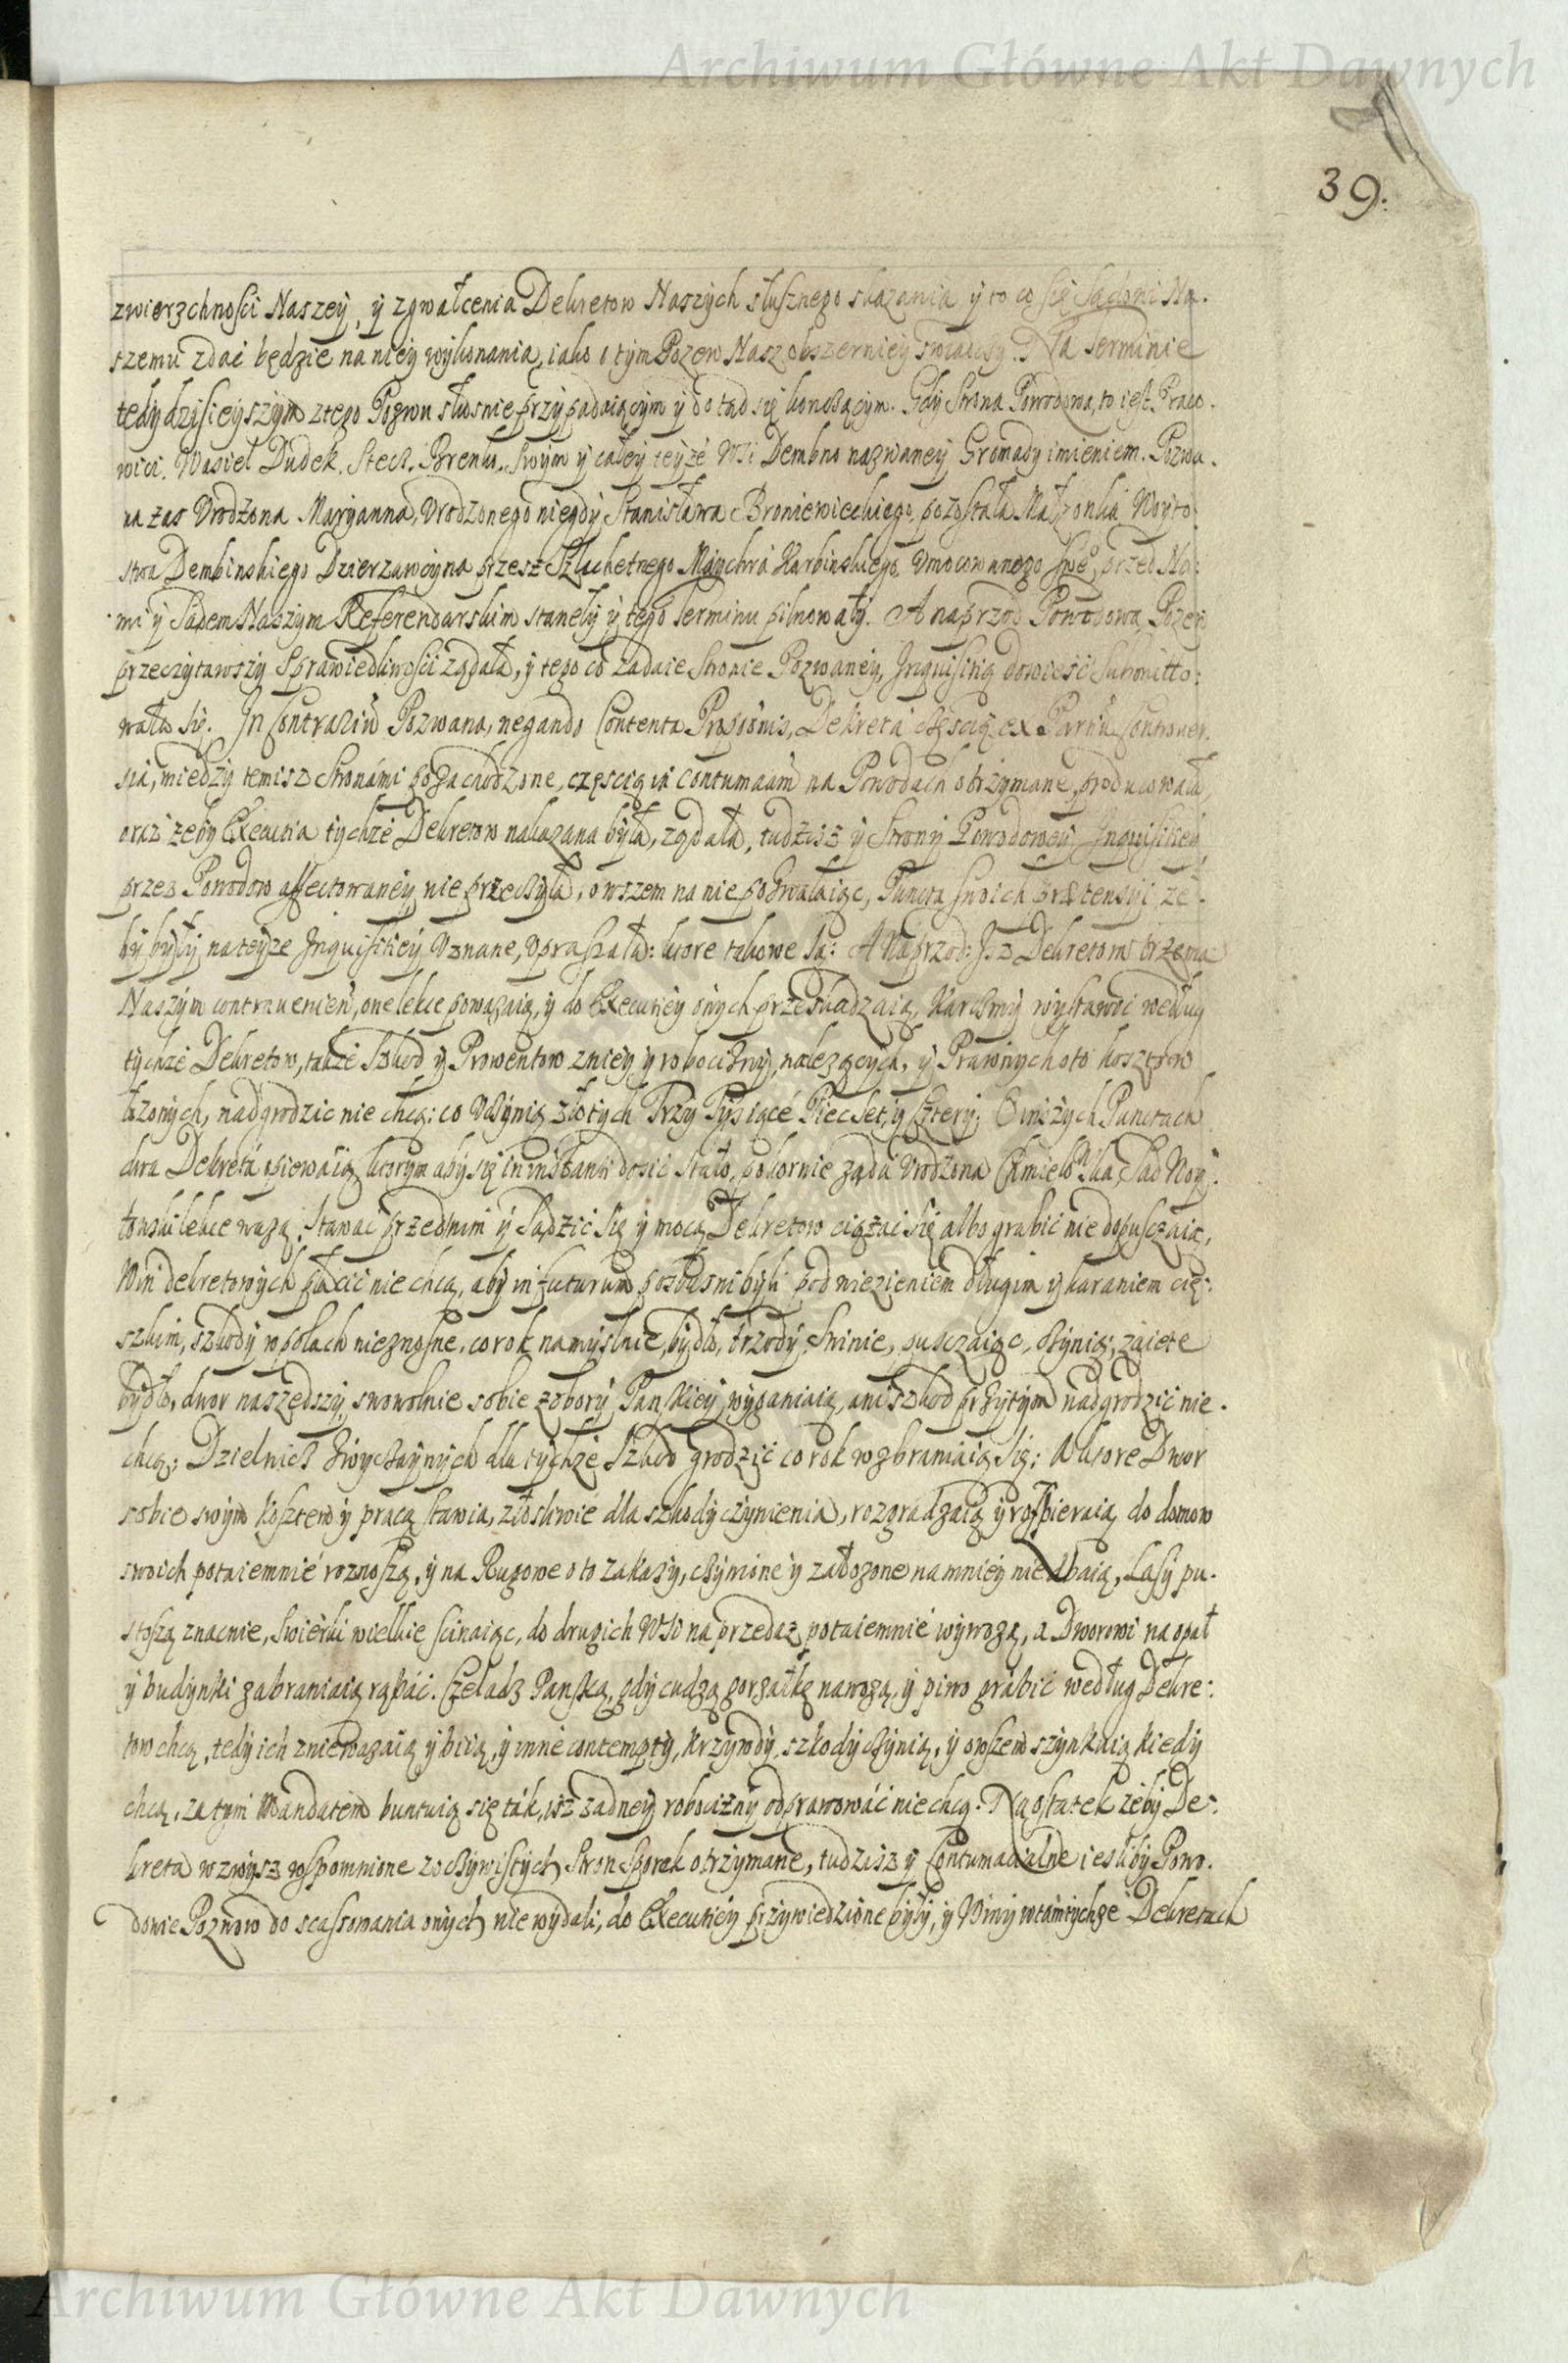 Archiwum Główne Akt Dawnych
39.
zwierzchności Naszey, y zgwałcenia Dekretow Naszych słusznego skazania y to co się Sądowi Na.
szemu zdać będzie na niey wykonania, iako o tym Pozew Nasz obszerniey swiadczy. Na Terminie
tedy dzisieyszym z tego Pozwu słusnie przypadaiącym y do tąd się konczącym. Gdy Strona Powodowa, to iest Praco.
wici. Wasiel Dudek. Stecz. Brenko. Swym y całey teyże Wsi Dembno nazwaney Gromady imieniem. Pozwa.
na zas Vrodzona Maryanna, Vrodzonego niegdy Stanisława Broniewieckiego, pozostała Małzonka Woyto
stwa Dembinskiego Dzierzawczyna przesz Szlachetnego Maychra Karbinskiego, Vmocowanego Swe, przed Na:
mi y Sądem Naszym Referendarskim stanely y tego Terminu pilnowały. A naprzod Powodowa Pozew
przeczytawszy Sprawiedliwości ządała, y tego co zadaie Stronie Pozwaney, Inquisitią dowieść Submitto:
wała się. In Contrariũ Pozwana, negando Contenta Propõnis, Dekreta częscią ex Partiũ Controuer.
sia, miedzy temisz Stronámi pozachodzone, częscią in Contumaciam na Powodach otrzymane, producowała,
oraz zeby Executia tychże Dekretow nakazana była, ządała, tudzisz y Strony Powodowey Inquisitiey
przez Powodow affectowaney nie przeczyła, owszem na nie pozwalaiąc, Puncta swoich prætensyi ze.
by były na teyze Inquisitiey Vznane, vpraszała: ktore takowe są: A Naprzod: Isz Dekretom trzema
Naszym contraueniuń, one lekce powazaią, y do Executiey onych przeskadzaią, Karczmy wystawić według
tychże Dekretow, także Szkod y Prowentow z niey y robocizny, nalezących, y Prawnych oto kosztow
łozonych, nadgrodzic nie chcą: co Vczynią złotych Trzy Tysiące Piecset y Cztery; O inszych Punctach
dwa Dekreta opiewaią ktorym aby się in instanti dosić stało, pokornie ząda Vrodzona Chmielowska, Sad Woy:
towski lekce wazą. Stawać przed nim y Sądzić się y mocą Dekretow ciązać się albo grabić nie dopusczaią,
Win dekretowych płacić nie chcą, aby in futurum posłusni byli pod więzieniem długim y karaniem cię:
szkim, szkody w polach nieznosne, co rok namyslnie, bydło, trzody, Swinie, pusczaiąc, czynią; zaiete
bydło, dwor naszedszy, swowolnie sobie z obory Panskiey, wyganiaią, ani szkod przytym nadgrodzić nie.
chcą; Dzielnicz Zwyczaynych dla tychże Szkod grodzić co rok wzbraniaią się; A ktore Dwor
sobie swym kosztem y pracą stawia, złosliwie dla szkody czynienia, rozgradzaią y rospieraią do domow
swoich potaiemnie roznoszą, y na Rugowe o to zakazy, czynione y załozone namniey nie dbaią, Lasy pu.
stoszą znacnie, Swierki wielkie scinaiąc, do drugich Wsi na przedaz potaiemnie wywozą, a Dworowi na opał
y budynki zabraniaią rąbáć. Czeladz Panską, gdy cudzą gorzałkę nawozą, y piwo grabić według Dekre:
tow chcą, tedy ich zniewazaią y biią, y inne contempty, krzywdy, szkody czynią, y owszem szynkuią kiedy
chcą, za tym Mandatem buntuią się ták, isz zadney robocizny odprawowáć nie chcą. Na ostatek żeby De:
kreta wzwysz wspomnione z oczywistych Stron Sporek otrzymane, tudzisz y Contumacialne iesliby Powo.
dowie Pozwow do scassowania onych niewydali; do Executiey przywiedzione były, y Winy w tamtychże Dekretach
Archiwum Główne Akt Dawnych